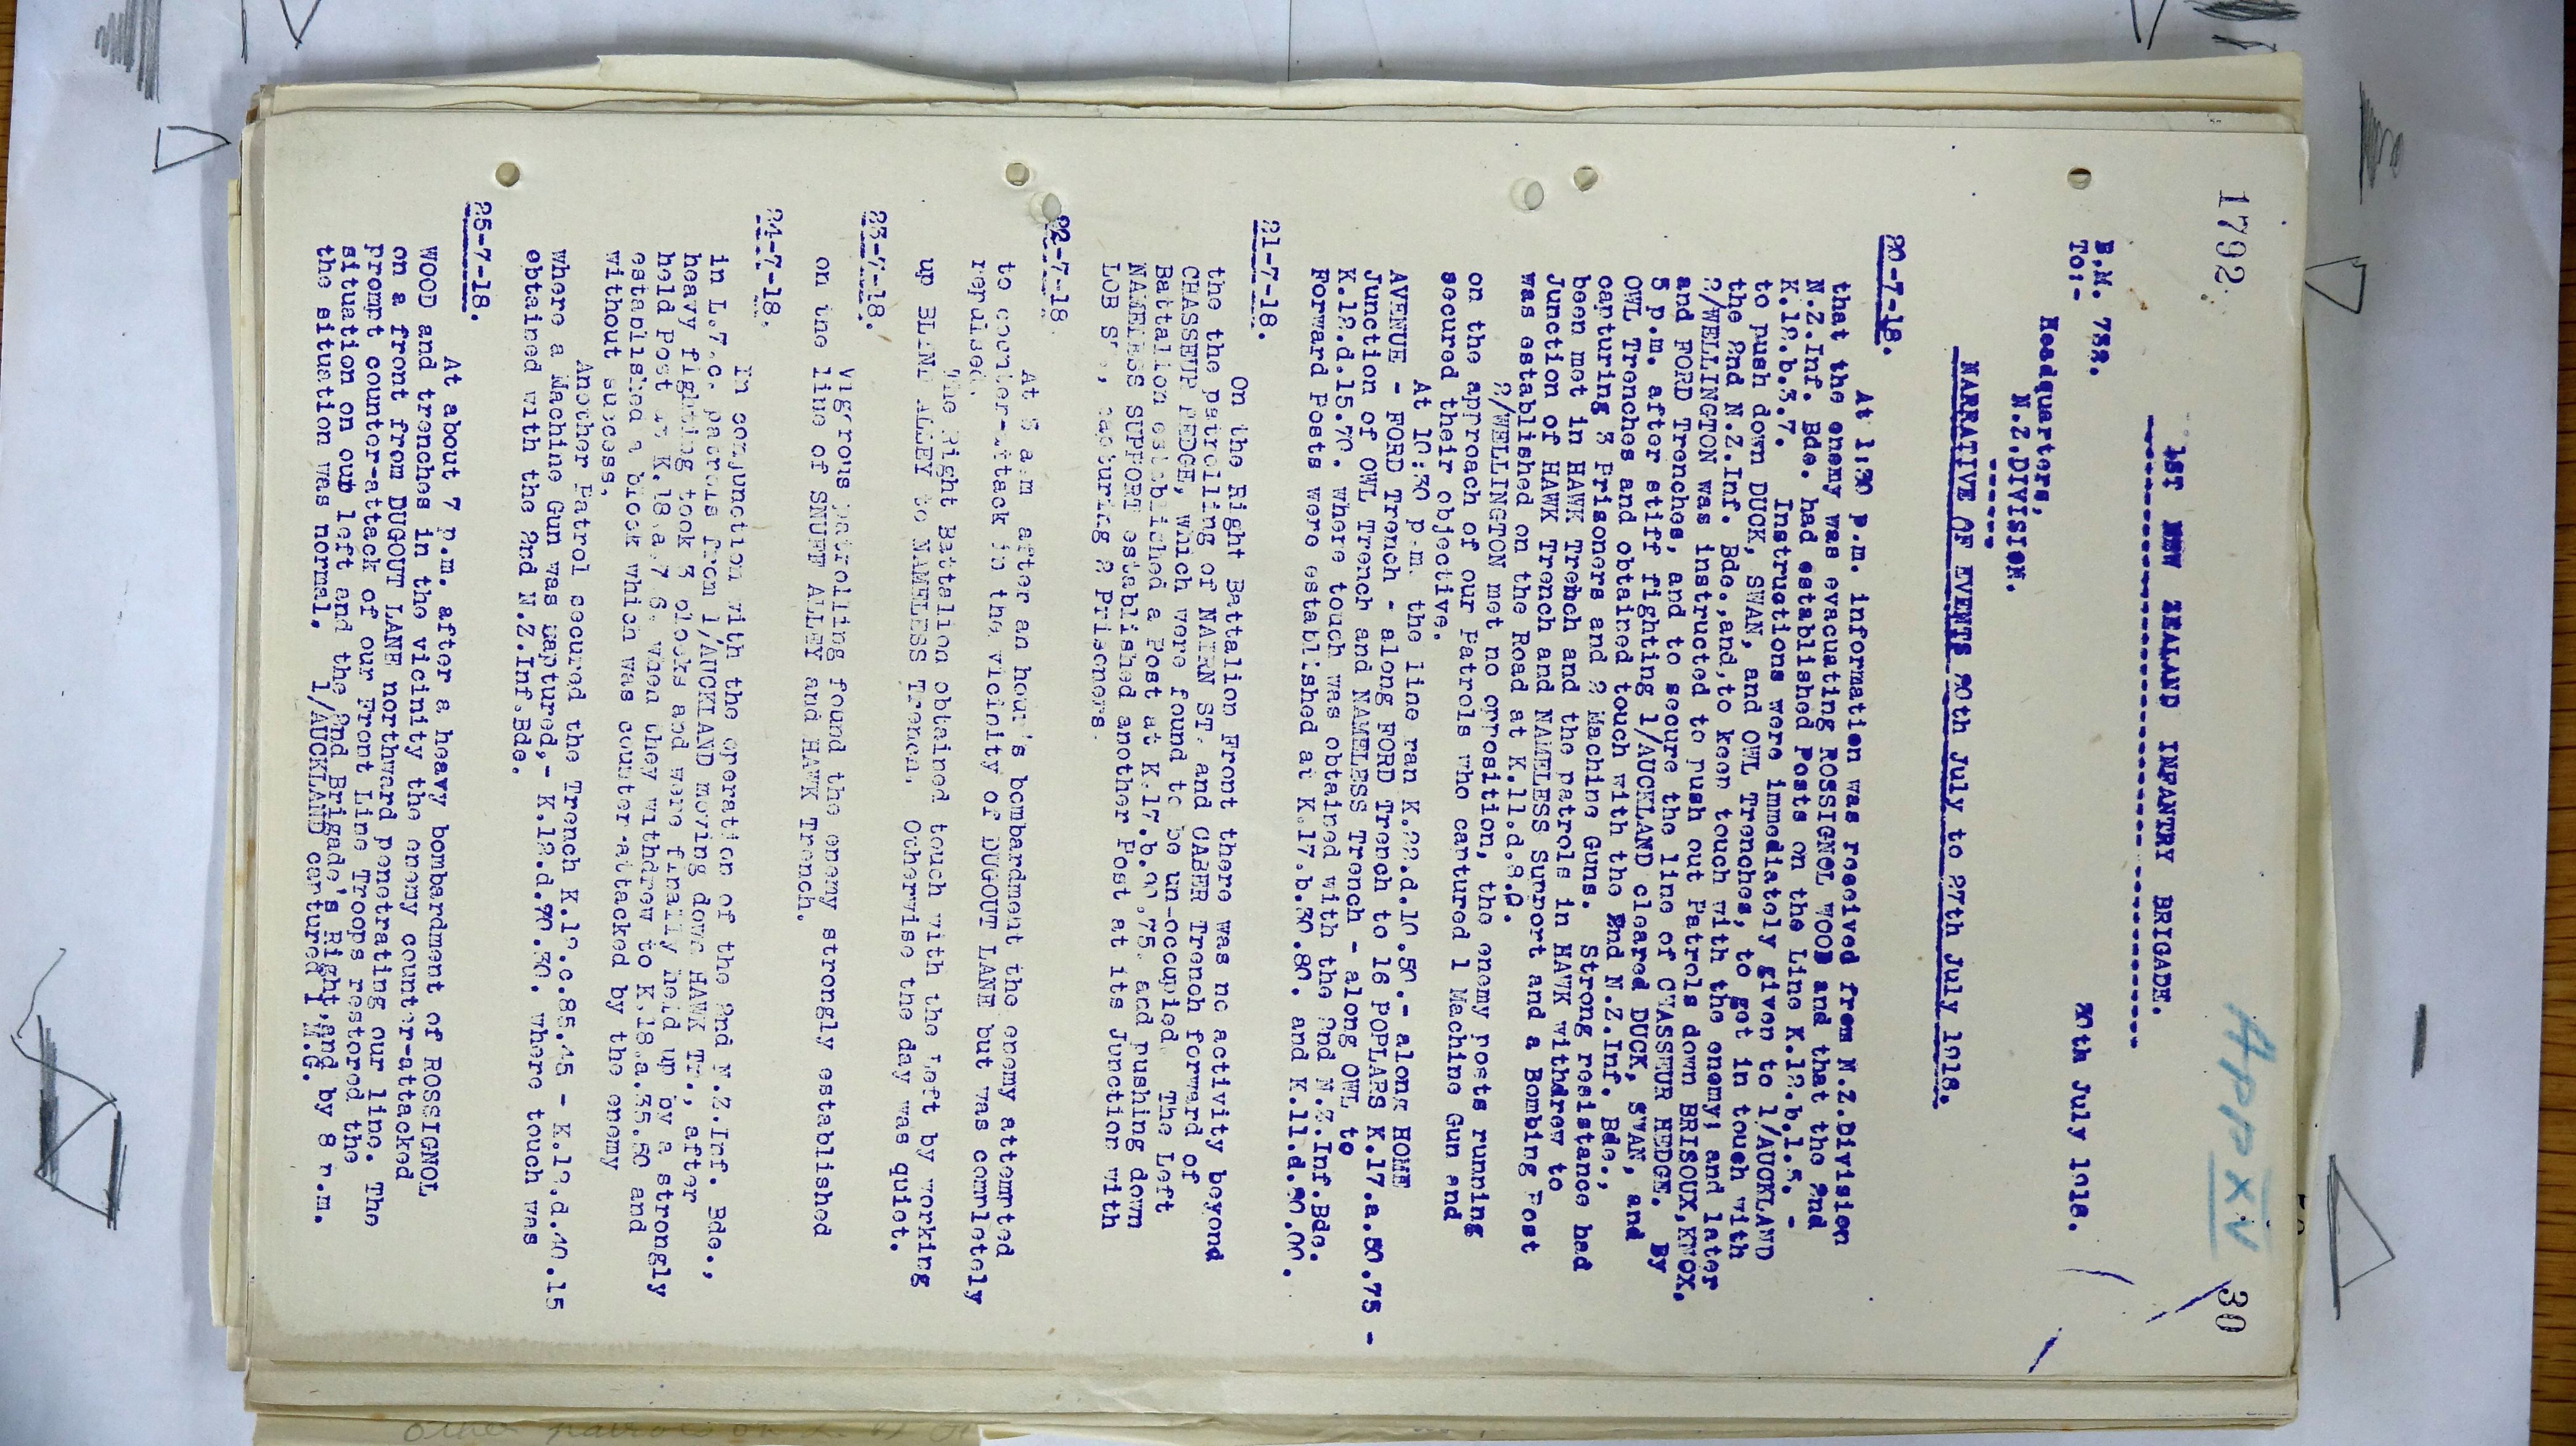 1792
30
APPXXV
1ST NEW ZEALAND INFANTRY BRIGADE.
B.M. 732.
To:-
Headquarters,
N.Z.DIVISION.
30th July 1918.
NARRATIVE OF EVENTS 20th July to 27th July 1918.
20-7-18.
At 1:30 p.m. information was received from N.Z.Division
that the enemy was evacuating ROSSIGNOL WOOD and that the 2nd
N.Z.Inf. Bde. had established Posts on the Line K.12.b.1.5. -
K.12.b.3.7. Instructions were immediately given to 1/AUCKLAND
to push down DUCK, SWAN, and OWL Trenches, to get in touch with
the 2nd N.Z.Inf. Bde.,and,to keep touch with the enemy; and later
2/WELLINGTON was instructed to push out Patrols down BRISOUX,KNOX,
and FORD Trenches, and to secure the line of CHASSEUR HEDGE. By
5 p.m. after stiff fighting 1/AUCKLAND cleared DUCK, SWAN, and
OWL Trenches and obtained touch with the 2nd N.Z.Inf. Bde.,
capturing 3 Prisoners and 2 Machine Guns. Strong resistance had
been met in HAWK Trench and the patrols in HAWK withdrew to
Junction of HAWK Trench and NAMELESS Support and a Bombing Post
was established on the Road at K.11.d.8.0.
2/WELLINGTON met no opposition, the enemy posts running
on the approach of our Patrols who captured 1 Machine Gun and
secured their objective.
At 10:30 p.m. the line ran K.22.d.10.50.- along HOME
AVENUE - FORD Trench - along FORD Trench to 16 POPLARS K.17.a.80.75 -
Junction of OWL Trench and NAMELESS Trench - along OWL to
K.12.d.15.70. where touch was obtained with the 2nd N.Z.Inf.Bde.
Forward Posts were established at K.17.b.30.80. and K.11.d.90.00.
21-7-18.
On the Right Battalion Front there was no activity beyond
the the patrolling of NAIRN ST. and CABER Trench forward of
CHASSEUR HEDGE, which were found to be un-occupied. The Left
Battalion established a Post at K.17.b.90.75. and pushing down
NAMELESS SUPPORT established another Post at its Junction with
LOB ST., capturing 2 Prisoners.
22-7-18.
At 5 a.m. after an hour's bombardment the enemy attempted
to counter-attack in the vicinity of DUGOUT LANE but was completely
repulsed.
The Right Battalion obtained touch with the Left by working
up BLIND ALLEY to NAMELESS Trench. Otherwise the day was quiet.
23-7-18.
Vigorous patrolling found the enemy strongly established
on the line of SNUFF ALLEY and HAWK Trench.
24-7-18.
In conjunction with the operation of the 2nd N.Z.Inf. Bde.,
in L.7.c. patrols from 1/AUCKLAND moving down HAWK Tr., after
heavy fighting took 3 blocks and were finally held up by a strongly
held Post at K.18.a.7.6. when they withdrew to K.18.a.35.80 and
established a block which was counter-attacked by the enemy
without success.
Another Patrol secured the Trench K.12.c.85.45 - K.12.d.40.15
where a Machine Gun was captured,- K.12.d.90.30. where touch was
obtained with the 2nd N.Z.Inf.Bde.
25-7-18.
At about 7 p.m. after a heavy bombardment of ROSSIGNOL
WOOD and trenches in the vicinity the enemy counter-attacked
on a front from DUGOUT LANE northward penetrating our line. The
prompt counter-attack of our Front Line Troops restored the
situation on our left and the 2nd Brigade's Right,and by 8 p.m.
the situation was normal. 1/AUCKLAND captured 1 M.G.